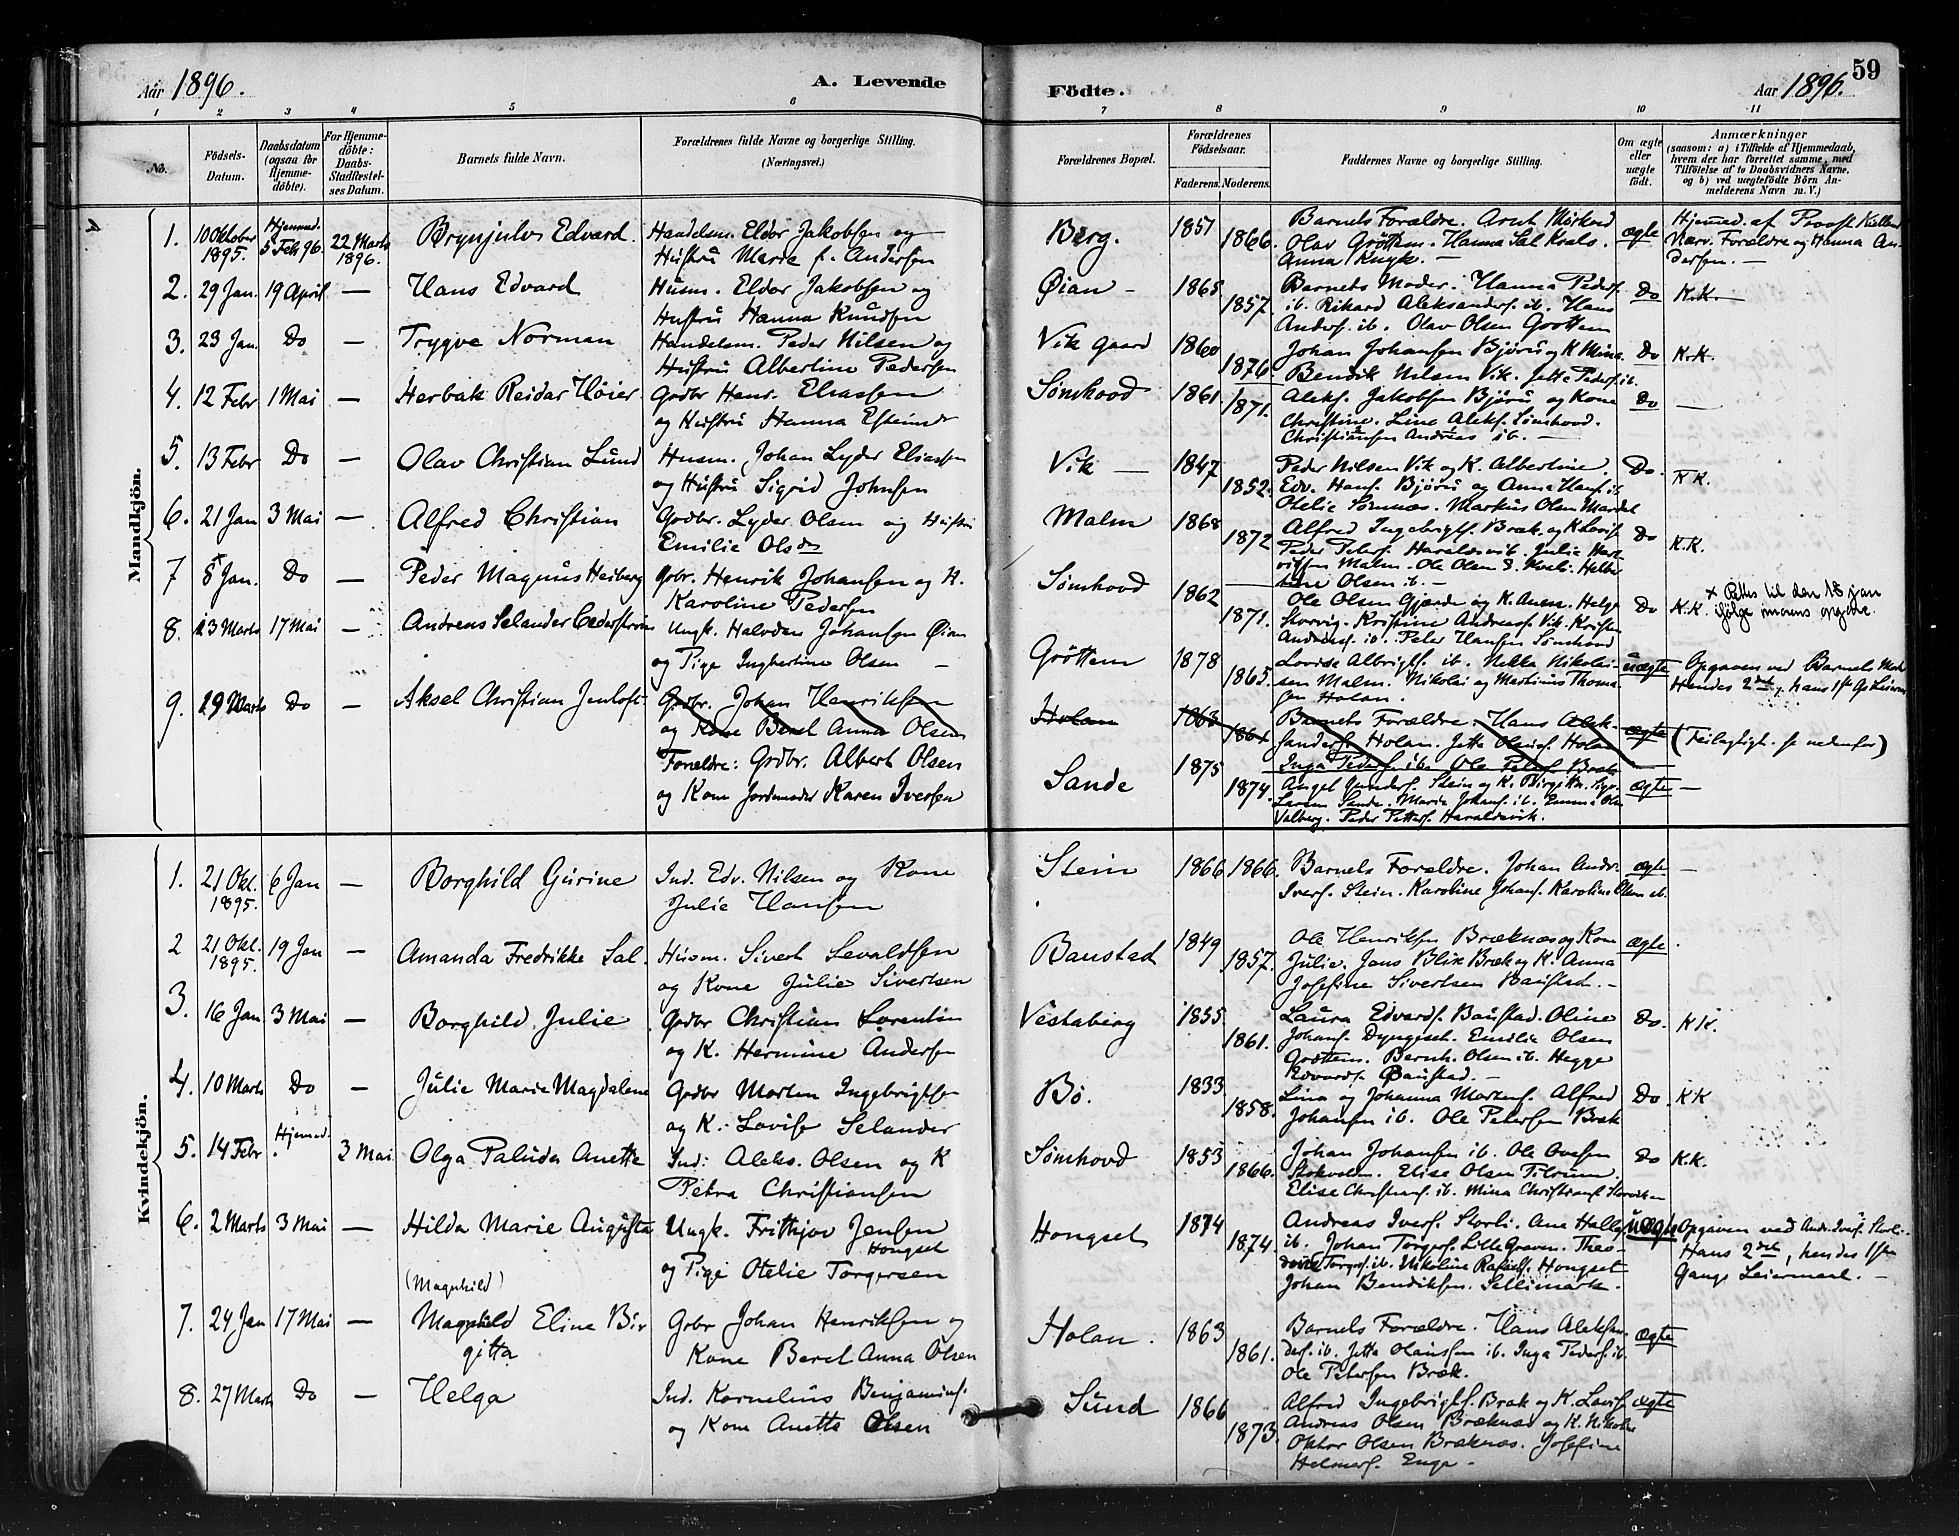 Aar 1896.
A. Levende
Födte.
Aar 1896.
59
1 2 3 4 5 6 7 8 9 10 11
No.
Födsels-Datum.
Daabsdatum (ogsaa for Hjemmedöbte).
For Hjemmedöbte: Daabs-Stadfæstelses Datum.
Barnets fulde Navn.
Forældrenes fulde Navne og borgerlige Stilling. (Næringsvei.)
Forældrenes Bopæl.
Forældrenes Födselsaar.
Faderens. Moderens.
Faddernes Navne og borgerlige Stilling.
Om ægte eller uægte födt.
Anmærkninger
(saasom: a) i Tilfælde af Hjemmedaab, hvem der har forrettet samme, med Tilföielse af to Daabsvidners Navne, og b) ved uægtefödte Börn Anmelderens Navn m. V.)
Mandkjön.
1. 10 Oktober 1895. Hjemmed. 5 Feb 96. 22 Marts 1896. Brynjulv Edvard. Handelsm. Eldor Jakobsen og
Hustru Marie f. Andersen
Berg. 1851 1866. Barnets Forældre. Arnt Mörkved
Olav Gröttem. Hanna Sal Kvals.
Anna Knyk. —
ægte
Hjemmed. af Provst
Nærv. Forældre og Hanna Andersen. —
2. 29 Jan. 19 April — Hans Edvard Husm. Eldor Jakobsen og
Hustru Hanna Knudsen
Øian — 1865 1857. Barnets Moder. Hanna Peders.
ib. Rikard Aleksanders. ib. Hans
Anders. ib. Olav Olsen Grottem
Do K.K. —
3. 23 Jan. Do — Trygve Norman Handelsm. Peder Nilsen og
Hustru Albertine Pedersen
Vik Gaard 1860 1876 Johan Johansen Björu og K Mina.
Bendik Nilsen Vik. Jette Peders. ib.
Do K.K.
4. 12 Febr 1 Mai — Herbak Reidar Höier Grdbr Henr. Eliassen
og Hustru Hanna
Sömhovd 1861 1871. Aleks. Jakobsen Björu og Kone
Christine. Line Aleks. Sömhovd.
Christiansen Andreas ib. —
Do —
5. 13 Febr Do — Olav Christian Lund Husm. Johan Lyder Eliassen
og Hustru Sigrid Johnsen
Vik — 1847 1852. Peder Nilsen Vik og K. Albertine.
Edv. Hans. Björu og Anna Hans. ib.
Otelie Sömnæs. Markus Olsen
Do. KK.
6. 21 Jan 3 Mai — Alfred Christian Grdbr. Lyder Olsen og Hustru
Emilie Olsdr
Malm 1868 1872 Alfred Ingebrigts. Bræk. og K Lovise
Peder Peters. Haraldsvik. Julie
Malm. Ole Olsen
Olsen ib. —
Do K.K.
7 8 Jan. Do — Peder Magnus Heiberg Grbr. Henrik Johansen og H.
Karoline Pedersen
Sömhovd 1862 1871. Ole Olsen Gjærde og K. Anen. Helge
Storvig. Kristine Andreass. Vik. Kristen
Andreas. ib. Peter Hansen Sömhovd
Do K.K. × Rettes til den 18 jan
ifölge opgave.
8. 13 Marts 17 Mai — Andreas Selander Cederström Ungk. Halvdan Johansen Øian
og Pige Ingbertine Olsen —
Gröttem 1878 1865. Lovise Albrigts. ib. Nikolaisen
Malm. Nikolai og Martinus Thomasen
Holan
uægte Opgaven ved Barnets Mod
Hendes 2det, hans 1ste Gs Leierm
9. 29 Marts Do — Aksel Christian Jentoft. Grdbr. Johan Henriksen
og Kone Beret Anna Olsen
Holan 1863 1861 Barnets Forældre. Hans Aleksanders.
Holan. Jette Olaus. Holan
Inga Peders. ib. Ole Peters. Bræk
ægte (Feilagtigt. se nedenfor)
Forældre: Grdbr. Albert Olsen
og Kone Jordemoder Karen Iversen
Sande 1875 1874. Angel Gunders. Stein og K. Birgitte.
Larsen Sande. Marie Johans. ib. Emma Ols
Valberg. Peder Petters. Haraldsvik.
ægte —
Kvindekjön.
1. 21 Okt. 1895. 6 Jan — Borghild Gurine Ind. Edv. Nilsen og Kone
Julie Hansen
Stein 1866 1866. Barnets Forældre. Johan Andr.
Ivers. Stein. Karoline Johans. Karoline Olsen ib.
ægte —
2 21 Okt. 1895. 19 Jan — Amanda Fredrikke Sal. Husm. Sivert Sevaldsen
og Kone Julie Sivertsen
Baustad 1849 1857. Ole Henriksen Bræknæs og Kone
Julie. Jens Blix Bræk og K. Anna
Josefine Sivertsen Baustad. —
ægte
3. 16 Jan 3 Mai — Borghild Julie Grdbr Christian Sorentin
og K. Hermine Andersen
Vestaberg 1855 1861. Laura Edvards. Baustad. Oline
Johans. Emilie Olsen
Grottem. Bernh. Olsen ib. Hegge
Edvards. Baustad. —
Do. KK.
4. 10 Marts Do — Julie Marie Magdalene Grdbr Morten Ingebrigtsen
og K. Lovise Selander
Bö. 1833 1858. Lina og Johanna Mortens. Alfred
Johansen ib. Ole Petersen Bræk
Do. KK
5. 14 Febr Hjemmed. 3 Mai Olga Paluda Anette Ind. Aleks. Olsen og K
Petra Christiansen
Sömhovd 1853 1866. Johan Johansen ib. Ole
Elise Olsen Tilrum.
Elise Christians. ib. Mina Christians. Storvik —
Do K.K.
6. 2 Marts 3 Mai — Hilda Marie Augusta Ungk. Frithjov Jensen
Hongset
og Pige Otelie Torgersen
Hongset 1874 1874. Andreas Ivers. Storli. Ane Halls.
ib. Johan Torgers. Lille Graven. Theodine
Torgers. ib. Nikoline Hongset
Johan Bendiksen. Sellimark. —
uægte Opgaven ved Andr. Ivers. Storli.
Hans 2det, hendes 1ste
Gangs Leiermaal. —
(Magnhild)
7. 24 Jan 17 Mai — Magnhild Eline Birgitta Grbr Johan Henriksen og
Kone Beret Anna Olsen
Holan. 1863 1861. Barnets Forældre. Hans Aleksanders.
ib. Jette Olaussen ib. Inga Peders. ib.
Ole Petersen Bræk.
ægte
8. 27 Marts Do — Helga Ind. Kornelius Benjamins.
og Kone Anette Olsen
Sund 1866 1873. Alfred Ingebrigts. Bræk og K. Lovise
Andreas Olsen Bræknæs og K. Nikoline
Oktav Olsen Bræknæs. Josefine
Helmers. Enge —
ægte